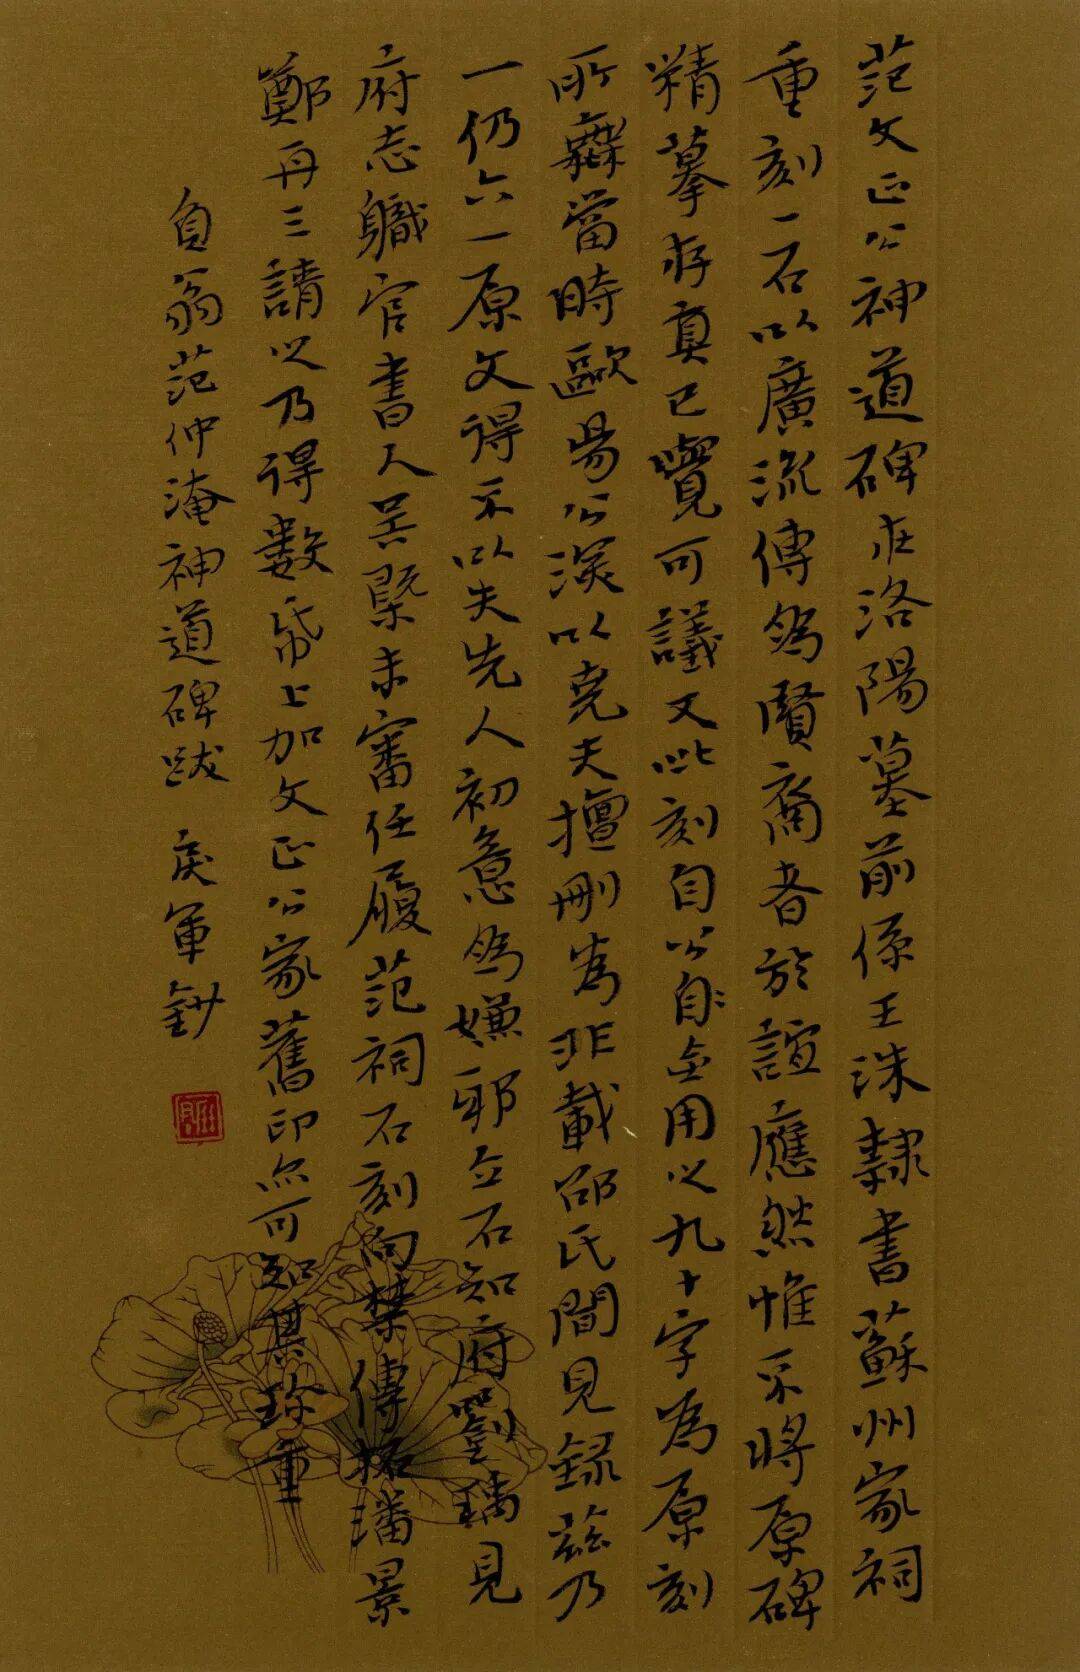 范文正公神道碑在洛陽墓前係王洙隸書蘇州家祠
重刻一石以廣流傳為賢裔者於誼應然惟不將原碑
精摹存真已覺可議又此刻自公自金用以九十字為原刻
所無當時歐陽公深以堯夫擅刪為非載邵氏聞見錄茲乃
一仍六一原文得不以失先人初意為嫌耶立石知府劉瑀見
府志職官書人吴槩未審任履范祠石刻向禁傳拓潘景
鄭再三請以乃得數帋上加文正公家舊印亦可知其珍重
負翁范仲淹神道碑跋 庆軍鈔